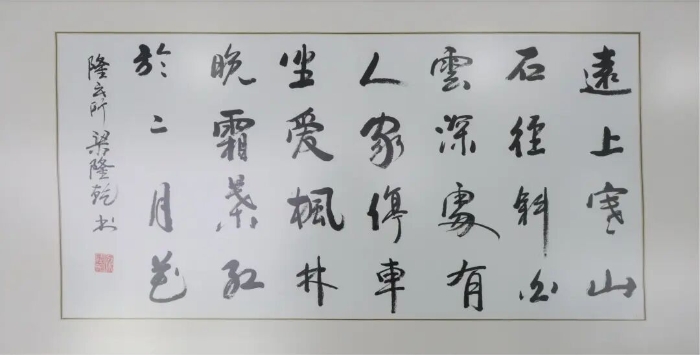 遠上寒山
石徑斜白
雲深處有
人家停車
坐爱楓林
晚霜葉红
於二月花
梁隆乾书